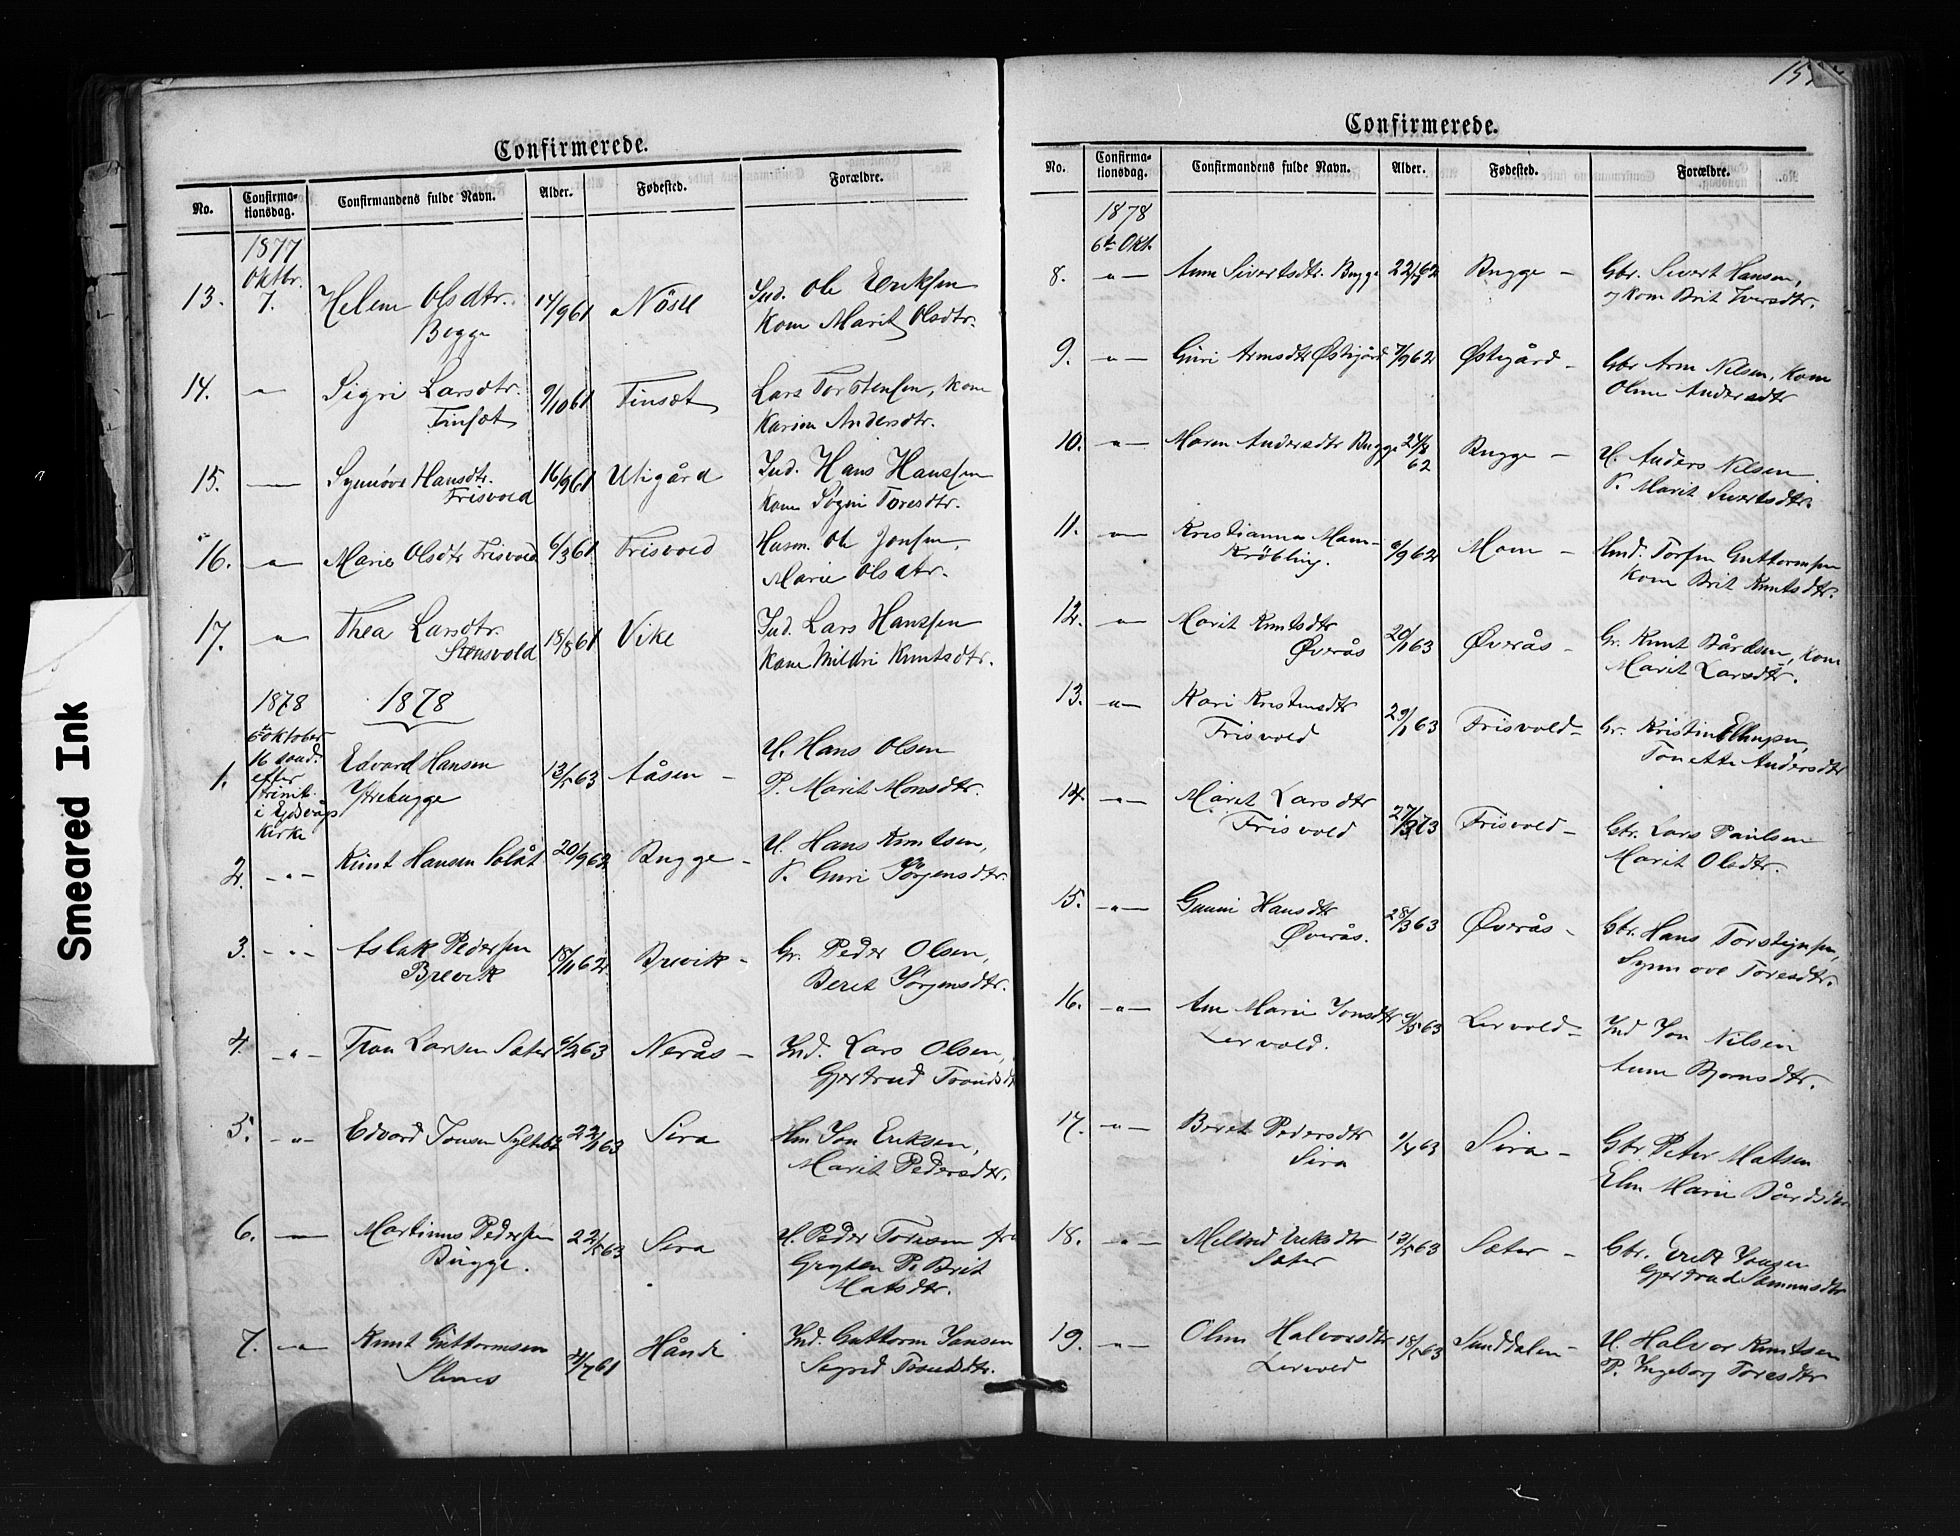 Smeared Ink
Confirmerede.
No. Confirma-tionsdag. Confirmandens fulde Navn. Alder. Fødested. Forældre.
1877
Oktbr.
13. 7. Helene Olsdtr. Bugge 14/9 61 Nöste Ind. Ole Eriksen
Kone Marit Olsdtr.
14. " Sigri Larsdtr. Tinsæt 9/10 61 Tinsæt Lars Torstensen, Kone
Karen Andersdtr.
15. — Synnöve Hansdtr. Frisvold 16/9 61 Utigård Ind. Hans Hanssen
Kone Søgni Toresdtr.
16. " Marie Olsdtr Frisvold 6/3 61 Frisvold Husm. Ole Jonsen,
Marie Olsdtr.
17. " Thea Larsdtr. Stensvold 15/8 61 Vike Ind. Lars Hanssen
Kone Mildri Knutsdtr.
1878 1878
6te Oktober
16 sønd.
efter
trinit.
i Ejdsvåg
Kirke
1. Edvard Hansen Ytrebugge 13/5 63 Aåsen – U. Hans Olsen
P. Marit Monsdtr.
2. -"- Knut Hansen Solåt 20/9 62 Bugge – U. Hans Knutsen,
P. Guri Jörgensdtr.
3. -"- Aslak Pedersen Brevik 18/11 62 Brevik – Gr. Peder Olsen,
Beret Jörgensdtr.
4. -"- Tron Larsen Sæter 6/2 63 Nerås – Ind. Lars Olsen,
Gjertrud Trondsdt
5. -"- Edvard Jonsen Syltebö 22/1 63 Sira Hm Jon Eriksen,
Marit Pedersdtr.
6. — Martinus Pedersen Bugge. 22/5 63 Sira U. Peder Toresen fra
Gryten P. Brit
Matsdtr.
7. -"- Knut Guttormsen Slenes 4/7 61 Hånde Ind. Guttorm Jansen
Sigrid Trondsdtr.
Confirmerede.
No. Confirma-tionsdag. Confirmandens fulde Navn. Alder. Fødested. Forældre.
1878
6te Okt.
8. -"- Anne Sivertsdtr. Bugge 22/7 62 Bugge – Gbr. Sivert Hansen,
og kone Brit Iversdtr.
9. -"- Guri Arnesdtr Østigård 7/9 62 Østigård – Gbr Arne Nilsen, Kone
Oline Andersdtr
10. -"- Maren Andersdtr Bugge 24/8 62 Bugge – U. Anders Nilsen
P. Marit Sivertsdtr.
11. -"- Kristianna Mam-Kröbling. 6/9 62 Moen – Ind. Torsen Guttormsen
Kone Brit Knutsdtr.
12. -"- Marit Knutsdtr Øverås 20/1 63 Øverås – Gr. Knut Bårdsen, Kone
Marit Larsdtr.
13. -"- Kari Kristensdtr Frisvold 29/1 63 Frisvold – Gr. Kristin Ellingsen,
Tonette Andersdtr
14. -"- Marit Larsdtr Frisvold 27/3 63 Frisvold – Gbr. Lars Paulsen
Marit Olsdtr.
15. -"- Gunni Hansdtr Øverås. 28/3 63 Øverås – Gbr. Hans Torstejnsen,
Synnove Toresdtr.
16. -"- Ane Marie Jonsdtr Lervold. 9/5 63 Lervold – Ind Jon Nilsen
Anne Bjørnsdtr.
17. -"- Beret Pedersdtr Sira 9/4 63 Sira – Gbr. Peter Matsen
Elen Marie Bårdsdtr
18. -"- Mildrid Eriksdtr Sæter 13/5 63 Sæter – Gbr. Erik Jonsen
Gjertrud Samunsdtr
19. -"- Oline Halvorsdtr Lervold 18/5 63 Sunddalen – U. Halvor Knutsen
P. Ingeborg Toresdtr